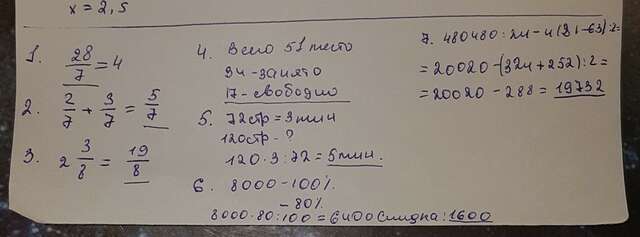 x = 2,5
1. 28/7 = 4
2. 2/7 + 3/7 = 5/7
3. 2 3/8 = 19/8
4. Всего 51 место
34 - занято
17 - свободно
5. 72стр = 3 мин
120стр - ?
120 · 3 : 72 = 5 мин.
6. 8000 - 100%
- 80%
8000 · 80 : 100 = 6400 Скидка: 1600
7. 480480 : 24 - 4(81-63) : 2 =
= 20020 - (324 + 252) : 2 =
= 20020 - 288 = 19732